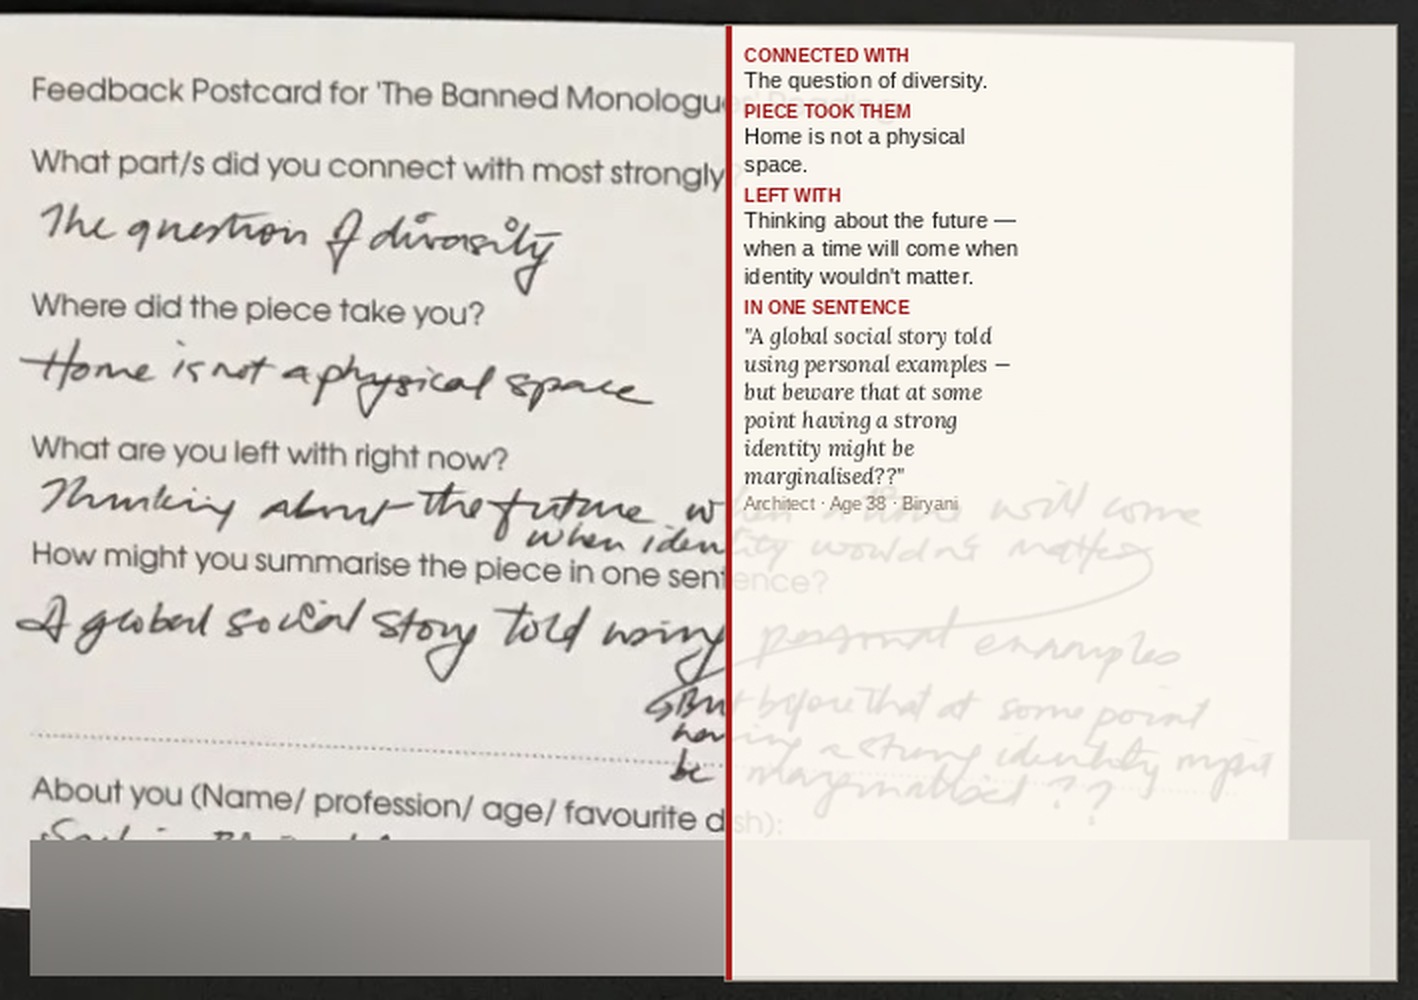 Feedback Postcard for 'The Banned Monologues' Reading
What part/s did you connect with most strongly?
The question of diversity
Where did the piece take you?
Home is not a physical space
What are you left with right now?
Thinking about the future when a time will come
when identity wouldn't matter
How might you summarise the piece in one sentence?
A global social story told using personal examples
But before that at some point
having a strong identity might
be marginalised??
About you (Name/ profession/ age/ favourite dish):
CONNECTED WITH
The question of diversity.
PIECE TOOK THEM
Home is not a physical
space.
LEFT WITH
Thinking about the future —
when a time will come when
identity wouldn't matter.
IN ONE SENTENCE
"A global social story told
using personal examples —
but beware that at some
point having a strong
identity might be
marginalised??"
Architect · Age 38 · Biryani